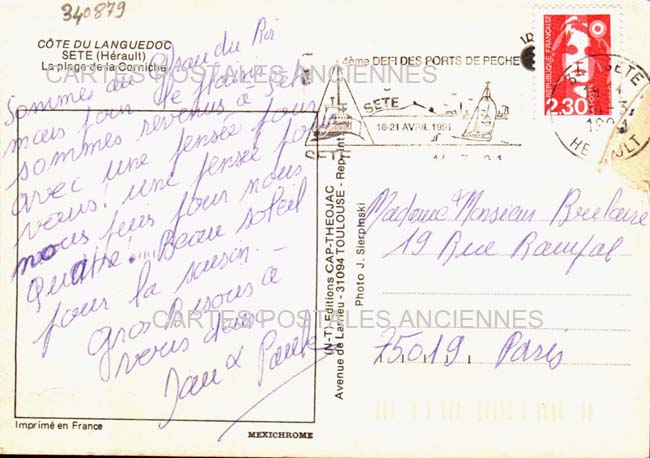 340879
CÔTE DU LANGUEDOC
SETE (Hérault)
La plage de la Corniche
CARTES POSTALES ANCIENNES
Sommes au Grau du Roi
mais pour le
sommes revenus à Sète
avec une pensée pour
vous! une pensée pour
nous
Quatre!.... Beau soleil
pour la saison. -
Gros Bisous à
vous deux
Jan & Paule
Imprimé en France
MEXICHROME
(N-T) Editions CAP-THEOJAC
Avenue de Larrieu - 31094 TOULOUSE - Rep.
Photo J. Sierpinski
4ème DEFI DES PORTS DE PECHE
SETE
16-21 AVRIL 1991
REPUBLIQUE FRANÇAISE
2,30
SETE
HERAULT
Madame Monsieur
19 Rue Rampal
75019 Paris
CARTES POSTALES ANCIENNES